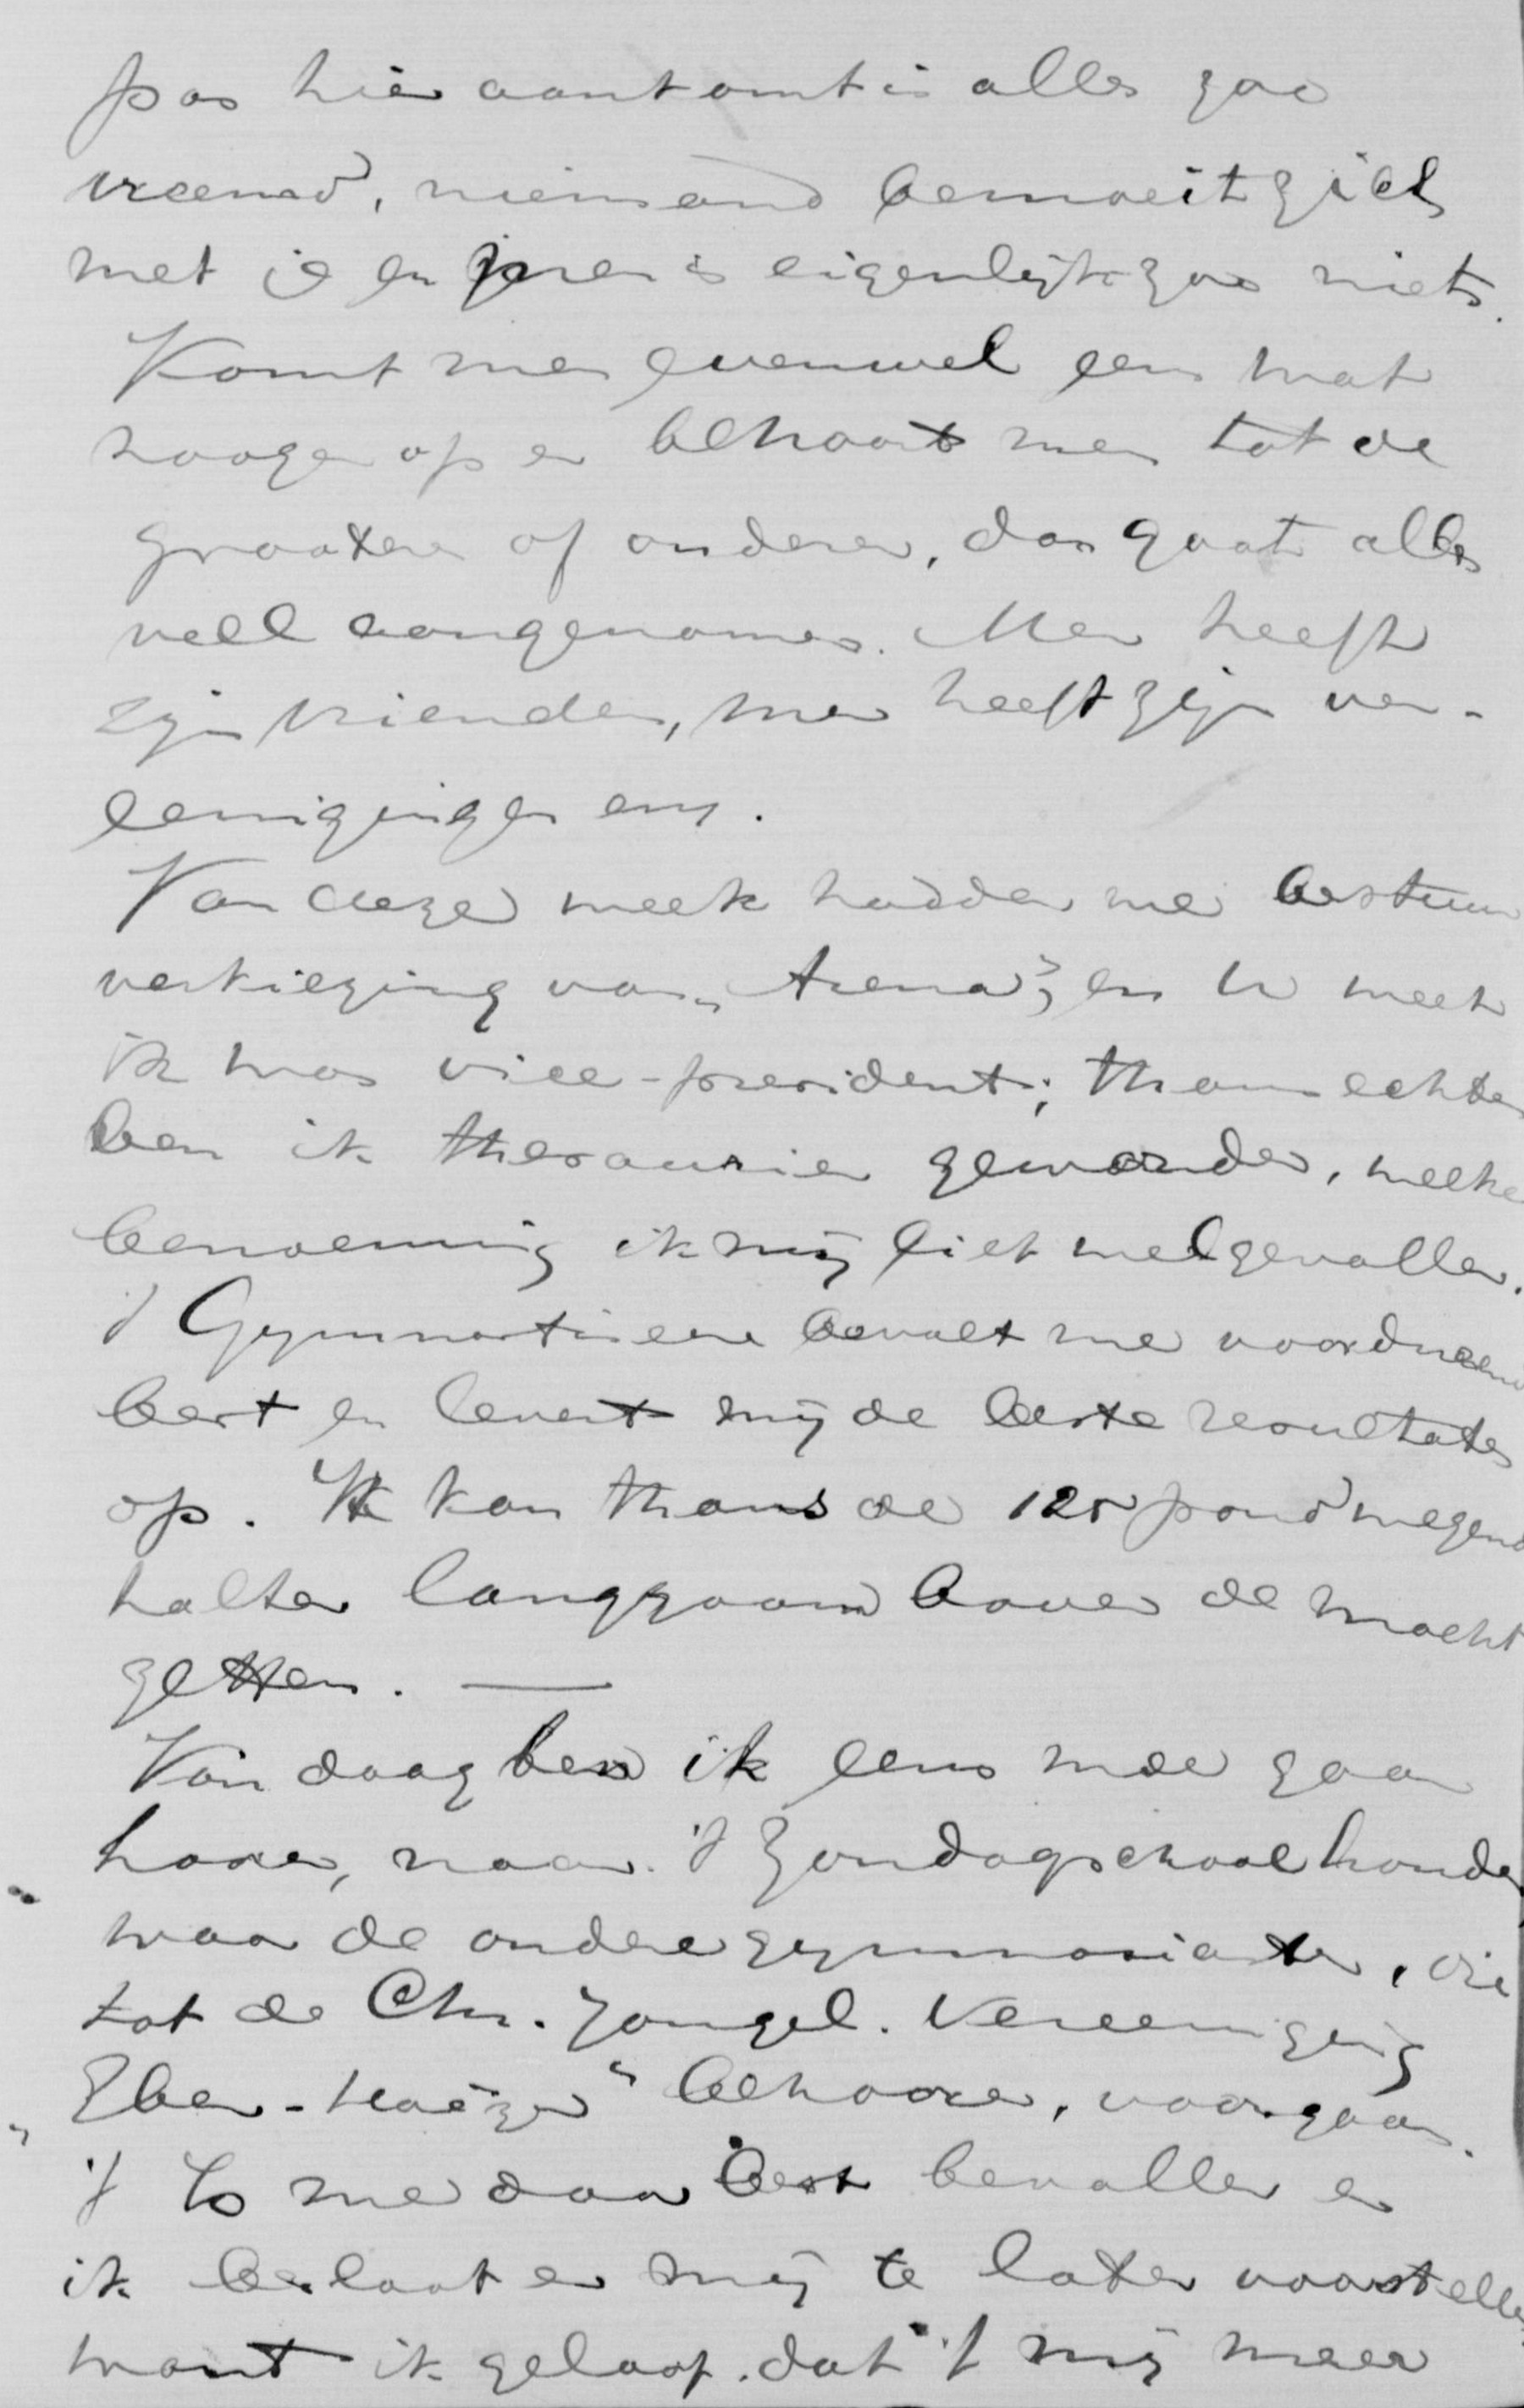 pas hier aankomt is alles zoo
vreemd, niemand bemoeit zich
met je en men is eigenlijk zoo niets.
Komt men evenwel een wat
hooger op en behoort men tot de
grootere of oudere, dan gaat alles
veel aangenamer. Men heeft
zijn vrienden, men heeft zijn ver-
eenigingen enz.
Van deze week hadden we bestuurs
verkiezing van „Arena”, en U weet
ik was vice-president; thans echter
ben ik thesaurier geworden, welke
benoeming ik mij liet welgevallen.
't Gymnastiseeren bevalt me voordurend
best en levert mij de beste resultaten
op. Ik kan thans de 125 pond wegende
halter langzaam boven de macht
zetten. —
Van daag ben ik eens mee gaan
hooren, naar 't Zondagschool houden
waar de andere gymnasiasten, die
tot de Chr. Jongel. Vereeniging
„Eben-Haëzer” behooren, voorgaan.
't Is me daar best bevallen en
ik besloot er mij te laten voorstellen
want ik geloof dat 't mij meer